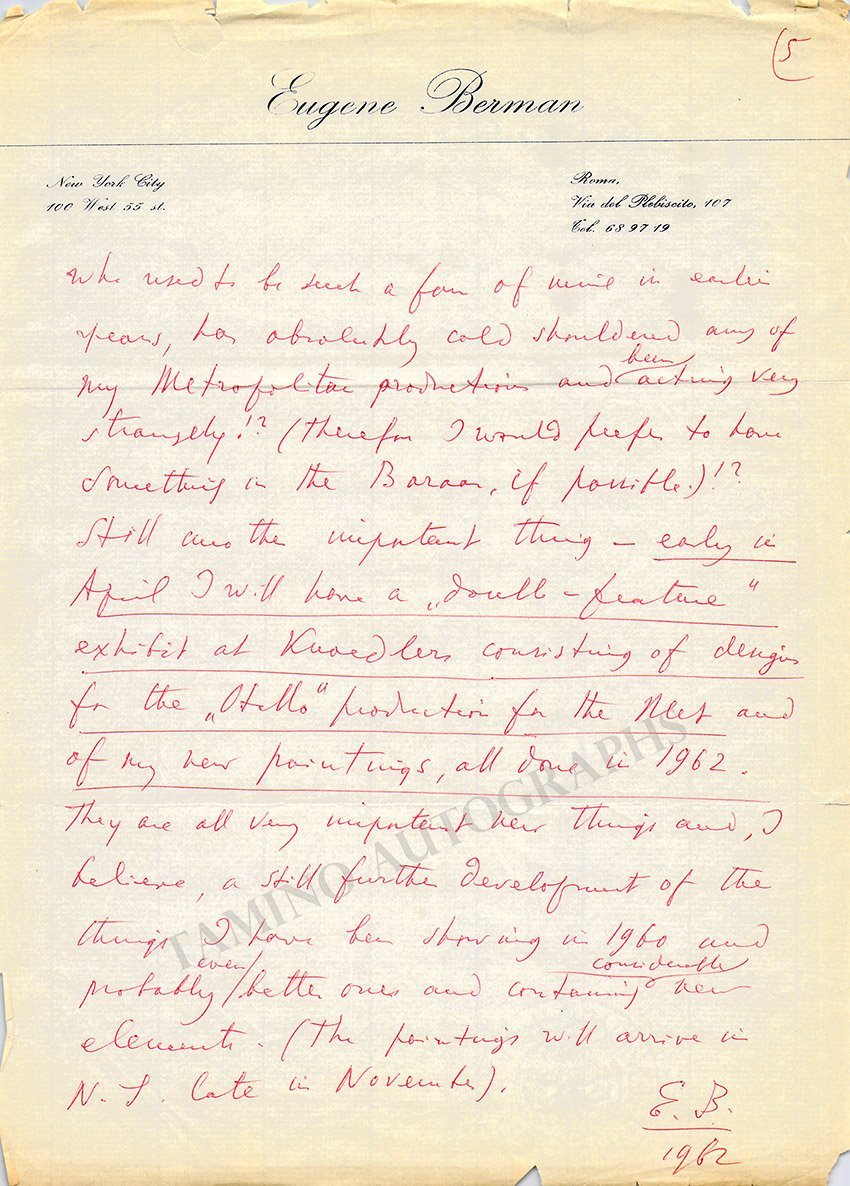 (5
Eugene Berman
New York City
100 West 55 st.
Roma,
Via del Plebiscito, 107
Tel. 68 97 19
who used to be such a fan of mine in earlier
years, has absolutely cold shouldered any of
been
my Metropolitan productions and acting very
strangely!? (therefor I would prefer to have
something in the Bazaar, if possible.)!?
Still another important thing – early in
April I will have a „double-feature"
exhibit at Knoedlers consisting of designs
for the „Otello" production for the Met and
of my new paintings, all done in 1962.
They are all very important new things and, I
believe, a still further development of the
things I have been showing in 1960 and
even considerable
probably / better ones and containing new
elements. (The paintings will arrive in
N. Y. late in November).
E. B.
1962
TAMINO AUTOGRAPHS